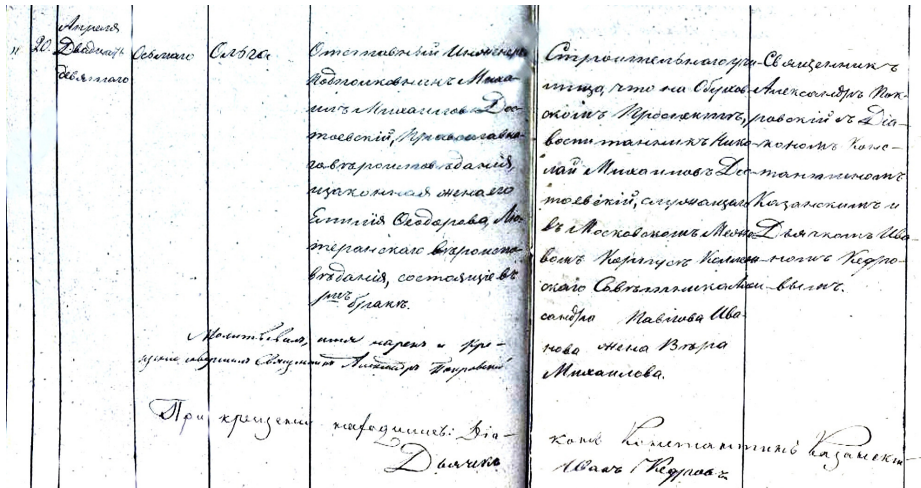 Апреля
" 20. Двадцать
девятаго
Осьмаго
Ольга
Отставный Инженеръ
Подполковникъ Миха-
илъ Михаиловъ Дос-
тоевскій, Православна-
го вѣроисповѣданія,
и законная жена его
Емилія Ѳеодорова, Лю-
теранскаго вѣроиспо-
вѣданія, состоящіе въ
1мъ бракѣ.
Строительнаго учи-
лища, что на Обухов-
скомъ Проспектѣ,
воспитанникъ Нико-
лай Михаиловъ Дос-
тоевскій, служащаго
въ Московскомъ
вомъ Корпусѣ
скаго Совѣтника Алек-
сандра Павлова Ива-
нова жена Вѣра
Михаилова.
Священникъ
Александръ Пок-
ровскій съ Діа-
кономъ Конс-
тантиномъ
Казанскимъ и
Дьячкомъ Ива-
номъ Кедро-
вымъ.
Молитвовалъ, имя нарекъ и кре-
щеніе совершилъ Священникъ Александръ Покровскій
При крещеніи находились: Діа-
конъ Константинъ Казанскій
Дьячекъ Иванъ Кедровъ